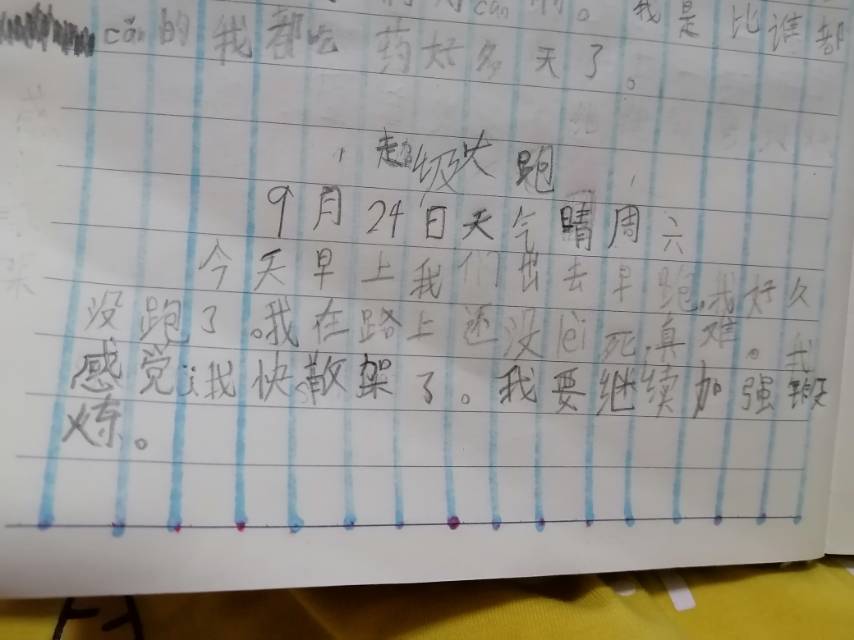 cǎn的我都吃药好多天了。我是比谁都
超级大跑
9月24日天气晴周六
今天早上我们出去早跑,我好久
没跑了。我在路上还没lèi死,真难。我
感觉我快散架了。我要继续加强锻
炼。